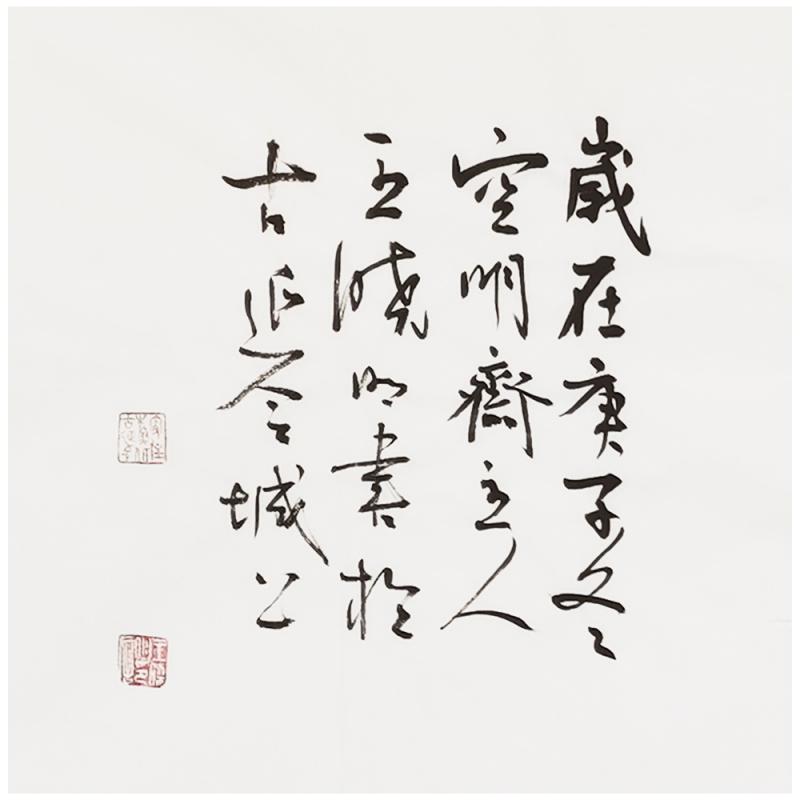 歲在庚子冬
空明齋主人
王曉明書於
古延令城公